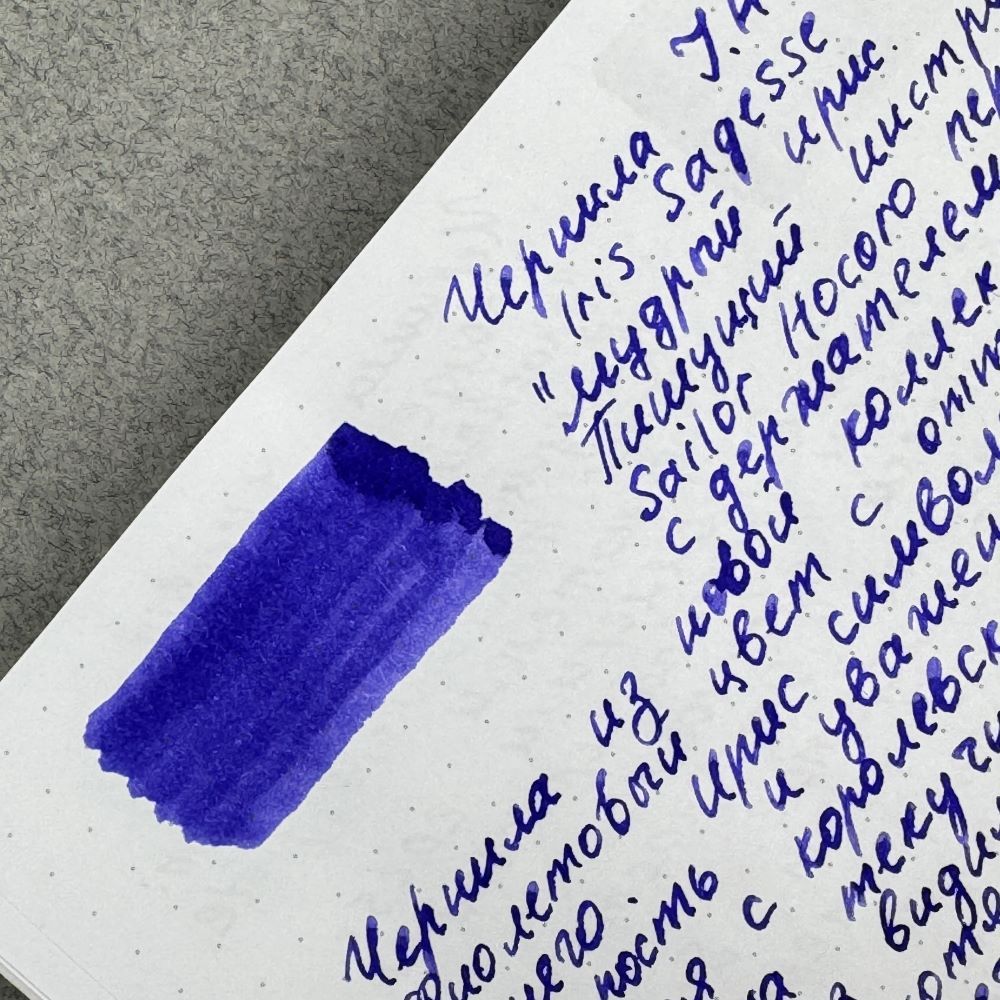 Чернила J.H
Iris Sagesse
"мудрый ирис.
Пишущий инстр
Sailor Hocoro пер
с держателем
Чернила из новой коллек
фиолетовый цвет с отт
него. Ирис символ
ность и уважен
я с королевск
а текучи
види